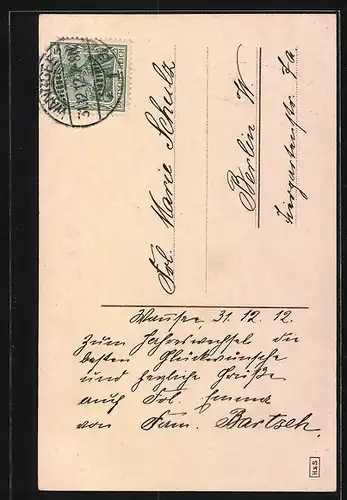 Frl. Marie Schulz
Berlin W.
Tiergartenstr. 7a
Wannsee, 31. 12. 12.
Zum Jahreswechsel die
besten Glückwünsche
und herzliche Grüße
auch Frl. Emma
von Fam. Bartsch.
WANNSEE
31.12.12
H&S